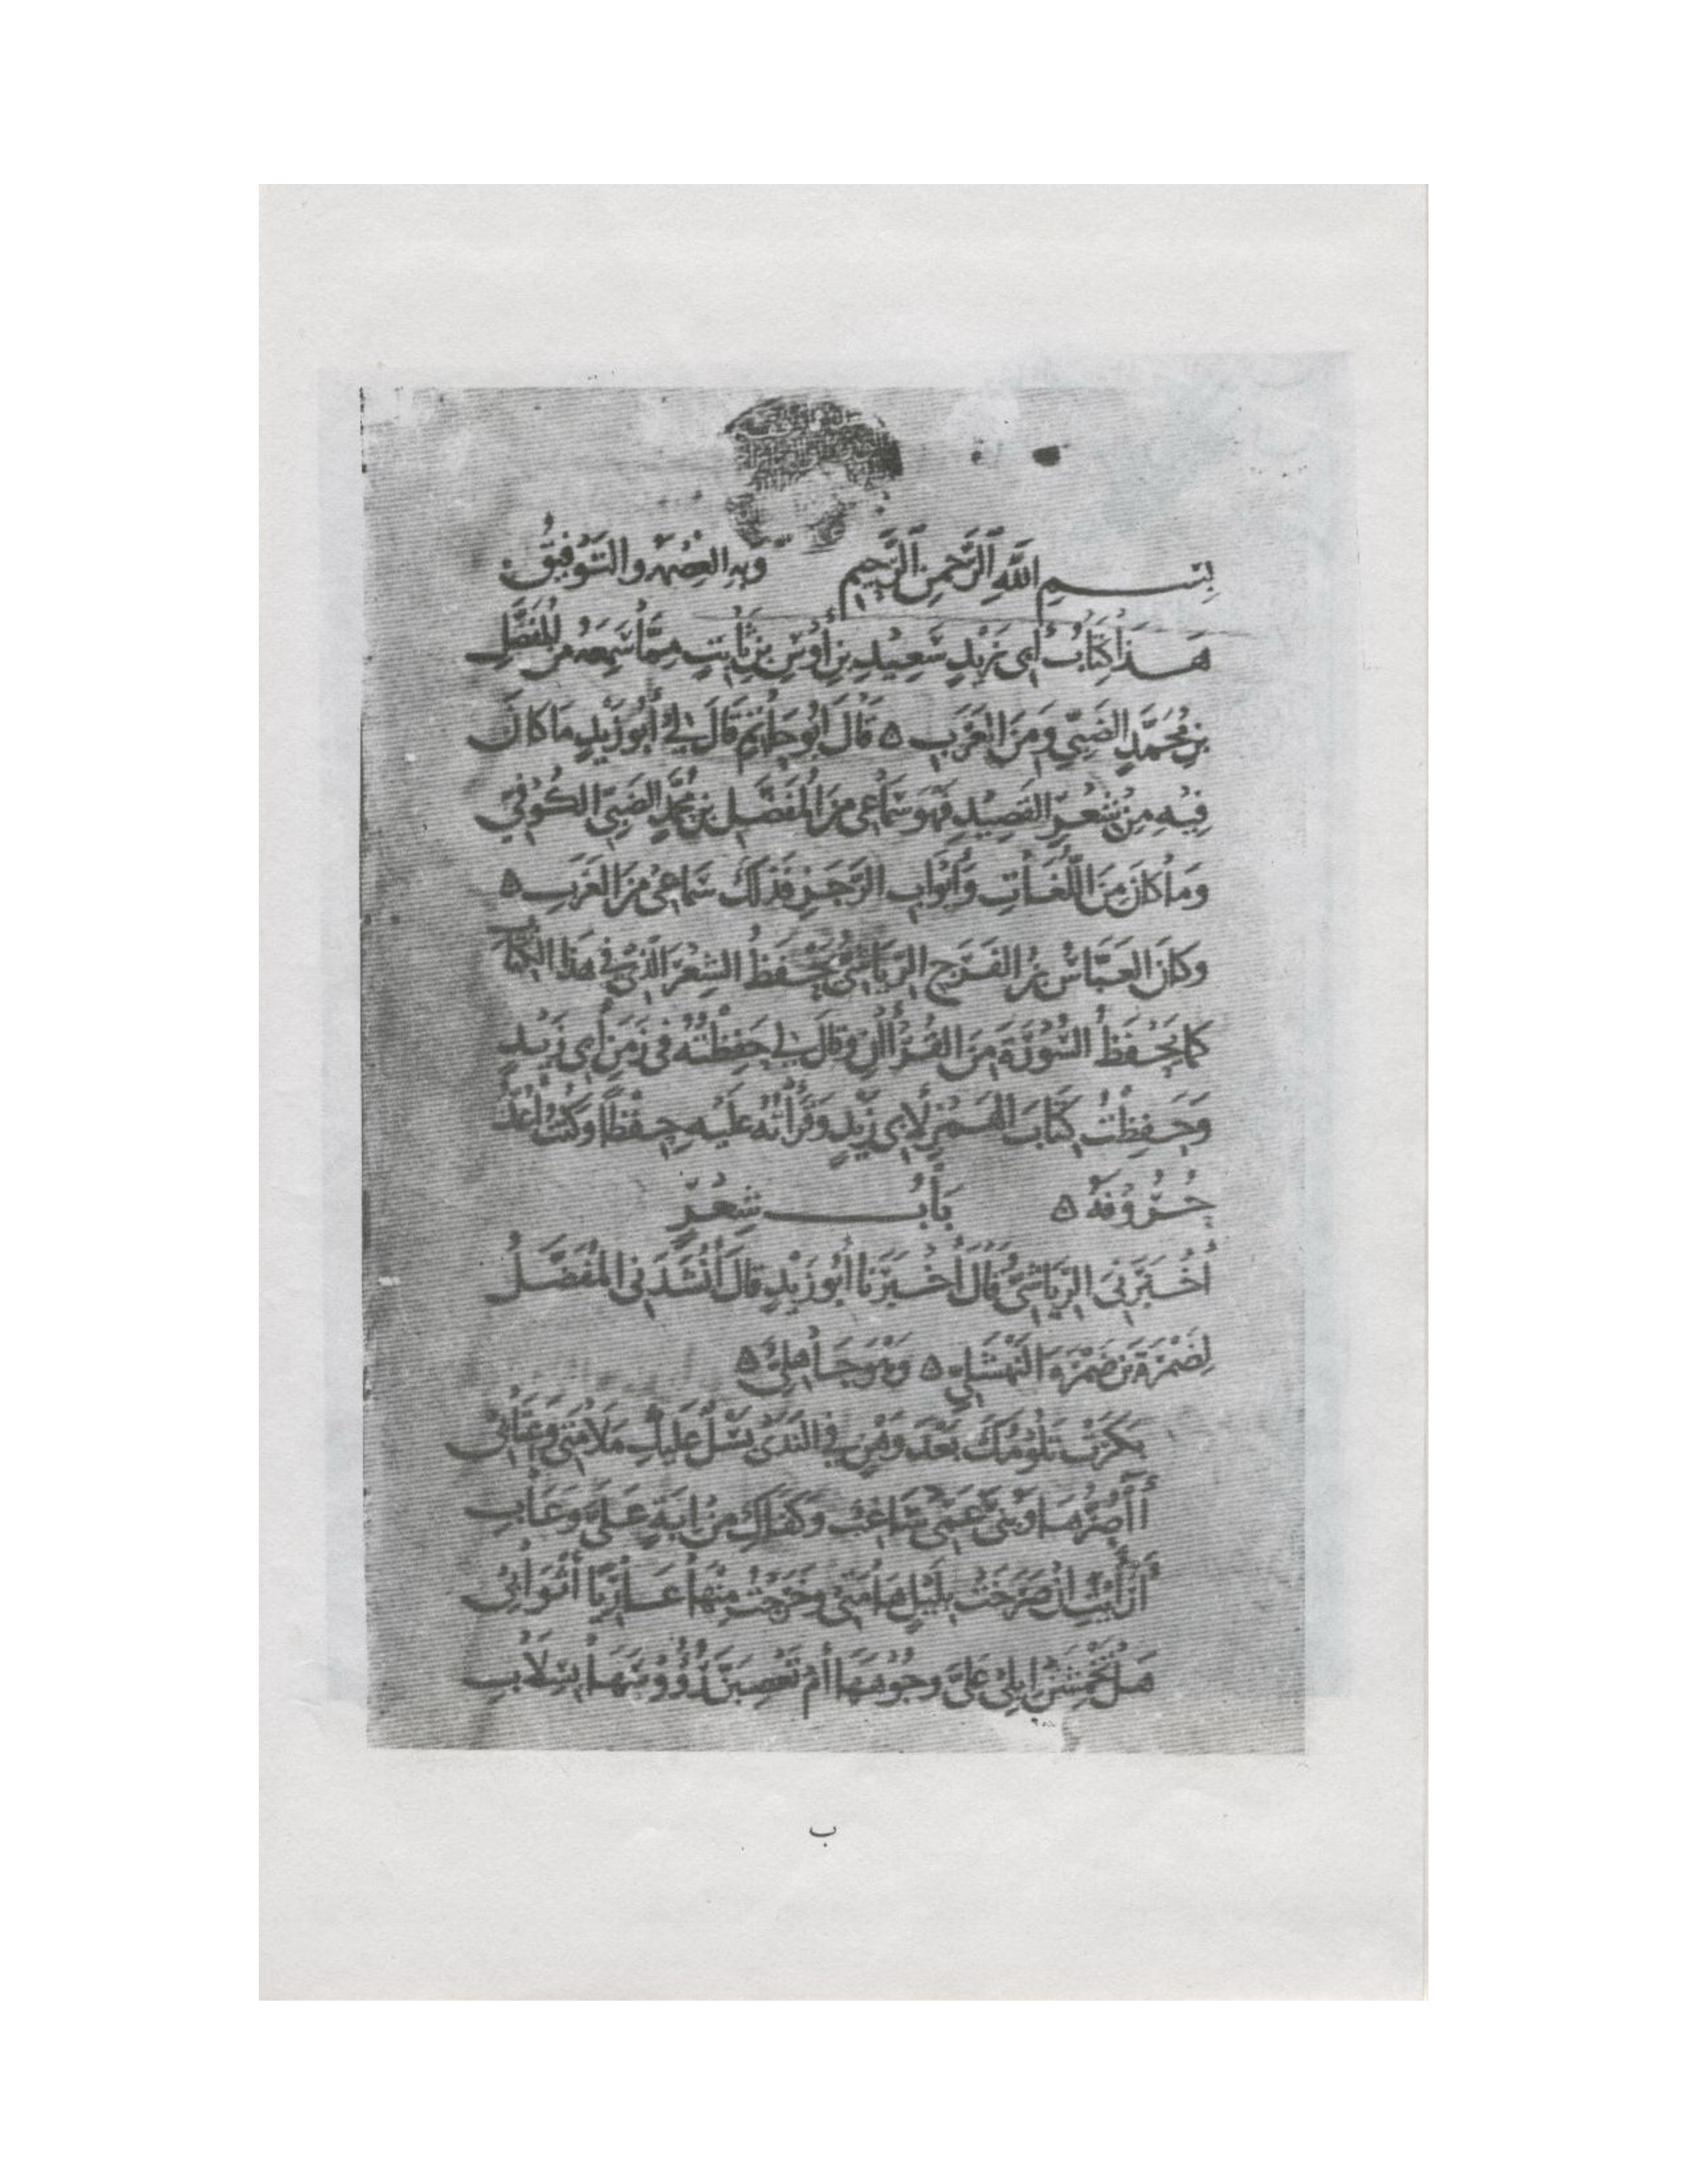 بِسْمِ اللَّهِ الرَّحْمَنِ الرَّحِيمِ وَبِهِ العِصْمَةُ والتَّوْفِيقُ
هَذَا كِتَابُ أَبِي زَيْدٍ سَعِيدِ بْنِ أَوْسِ بْنِ ثَابِتٍ مِمَّا سَمِعَهُ مِنَ المُفَضَّلِ
بْنِ مُحَمَّدٍ الضَّبِّيِّ وَمِنَ العَرَبِ ه قَالَ أَبُو حَاتِمٍ قَالَ لِي أَبُو زَيْدٍ مَا كَانَ
فِيهِ مِنْ شِعْرِ القَصِيدِ فَهُوَ سَمَاعِي مِنَ المُفَضَّلِ بْنِ مُحَمَّدٍ الضَّبِّيِّ الكُوفِيِّ
وَمَا كَانَ مِنَ اللُّغَاتِ وَأَبْوَابِ الرَّجَزِ فَذَلِكَ سَمَاعِي مِنَ العَرَبِ ه
وَكَانَ العَبَّاسُ بْنُ الفَرَجِ الرِّيَاشِيُّ يَحْفَظُ الشِّعْرَ الَّذِي فِي هَذَا الكِتَابِ
كَمَا يَحْفَظُ السُّورَةَ مِنَ القُرْآنِ وَقَالَ لِي حَفِظْتُهُ فِي زَمَنِ أَبِي زَيْدٍ
وَحَفِظْتُ كِتَابَ الهَمْزِ لِأَبِي زَيْدٍ وَقَرَأْتُهُ عَلَيْهِ حِفْظًا وَكُنْتُ أَعُدُّ
حُرُوفَهُ ه بَابُ شِعْرٍ
أَخْبَرَنِي الرِّيَاشِيُّ قَالَ أَخْبَرَنَا أَبُو زَيْدٍ قَالَ أَنْشَدَنِي المُفَضَّلُ
لِضَمْرَةَ بْنِ ضَمْرَةَ النَّهْشَلِيِّ ه وَهْوَ جَاهِلِيٌّ ه
بَكَرَتْ تَلُومُكَ بَعْدَ وَهْنٍ فِي النَّدَى بَسْلٌ عَلَيْكِ مَلَامَتِي وَعِتَابِي
أَأَصُرُّهَا وَبُنَيُّ عَمِّي سَاغِبٌ وَكَفَاكِ مِنْ إِبَةٍ عَلَيَّ وَعَابِ
أَرَأَيْتِ إِنْ صَرَخَتْ بِلَيْلٍ هَامَتِي وَخَرَجْتُ مِنْهَا عَارِيًا أَثْوَابِي
هَلْ تَخْمِشَنْ إِبِلِي عَلَيَّ وُجُوهَهَا أَمْ تَعْصِبَنَّ رُؤُوسَهَا بِسِلَابِ
ب